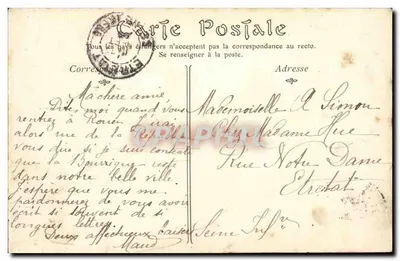 Carte Postale
Tous les pays étrangers n'acceptent pas la correspondance au recto.
Se renseigner à la poste.
Correspondance
Adresse
ETRETAT
Ma chère amie
Dites moi quand vous
rentrez à Rouen
alors rue de la
vous dire si je suis contente
que la reste
dans notre belle ville.
J'espère que vous me
pardonnerez de vous avoir
écrit si souvent de si
longues lettres.
Doux affectueux baisers
Maud
Mademoiselle A Simon
Chez Madame Hue
Rue Notre Dame
Etretat
Seine Infre